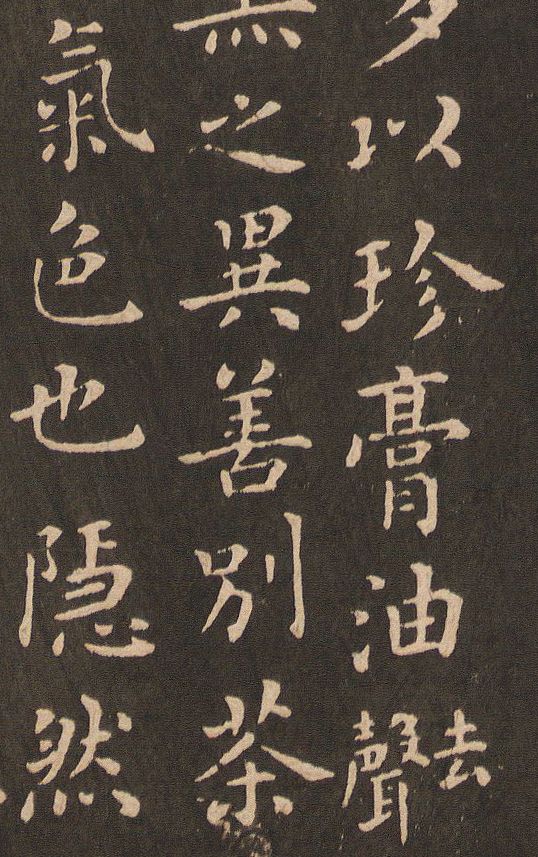 多以珍膏油去聲
黑之異善別茶
氣色也隱然